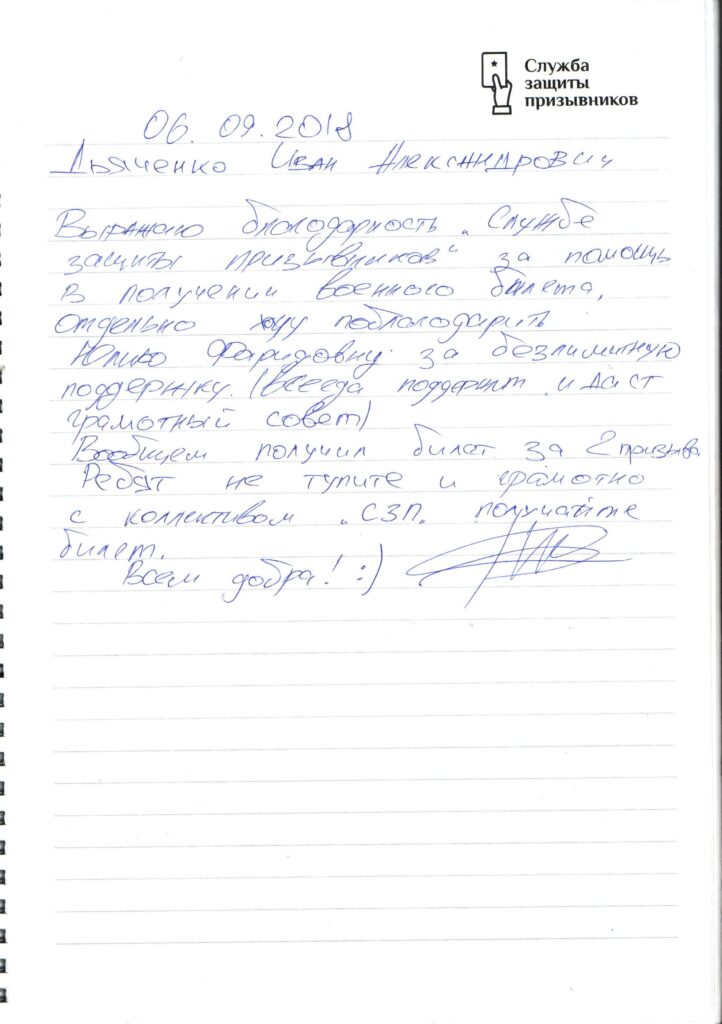 Служба
защиты
призывников
06. 09. 2018
Дьяченко Иван Александрович
Выражаю благодарность „Службе
защиты призывников" за помощь
в получении военного билета,
отдельно хочу поблагодарить
Юлию Фаридовну за безлимитную
поддержку. (всегда поддержит и даст
грамотный совет)
Вообщем получил билет за 2 призыва
Ребят не тупите и грамотно
с коллективом „СЗП" получайте
билет.
Всем добра! :)